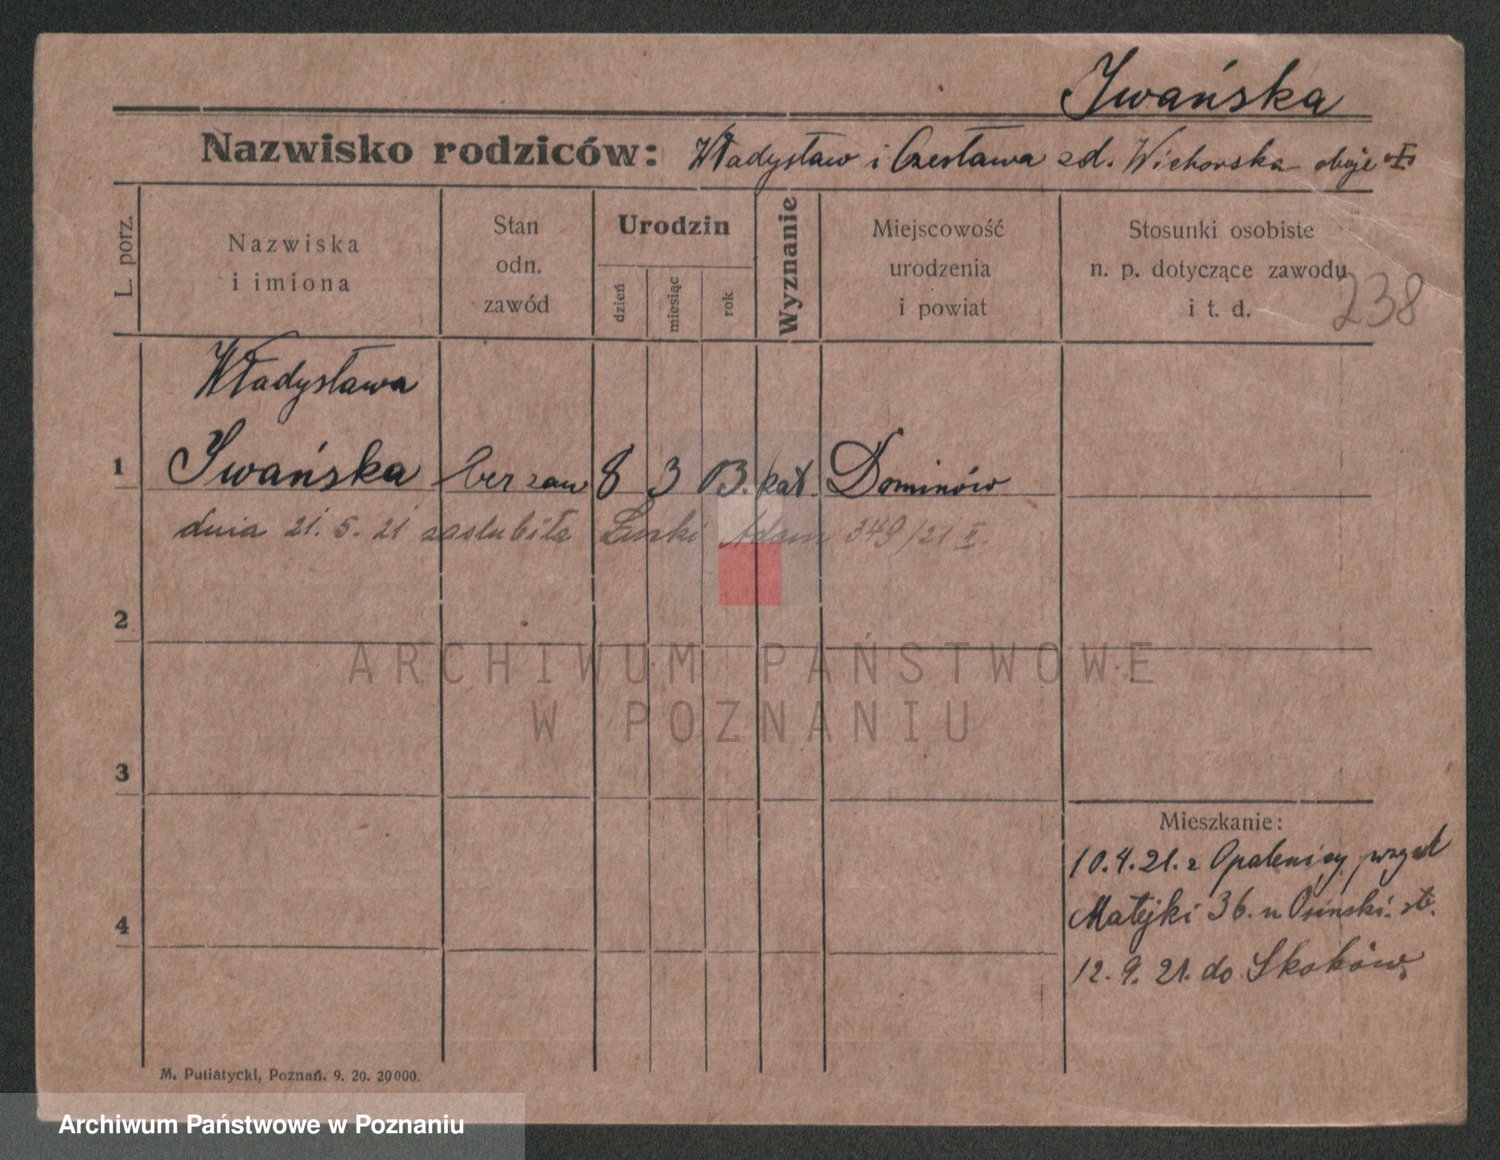 Iwańska
Nazwisko rodziców: Władysław i Czesława zd. Wichorska oboje
L. porz.
Nazwiska
i imiona
Stan
odn.
zawód
Urodzin
dzień
miesiąc
rok
Wyznanie
Miejscowość
urodzenia
i powiat
Stosunki osobiste
n. p. dotyczące zawodu
i t. d.
238
Władysława
1 Iwańska bez zaw 8 3 03. kat. Dominów
dnia 21. 5. 21 zaślubiła Adam 349/21 II.
2
ARCHIWUM PAŃSTWOWE
W POZNANIU
3
Mieszkanie:
10.4.21. z Opalenicy
Matejki 36. u Osinski.
4
12. 9. 21. do Skoków
M. Putiatycki, Poznań. 9. 20. 20000.
Archiwum Państwowe w Poznaniu